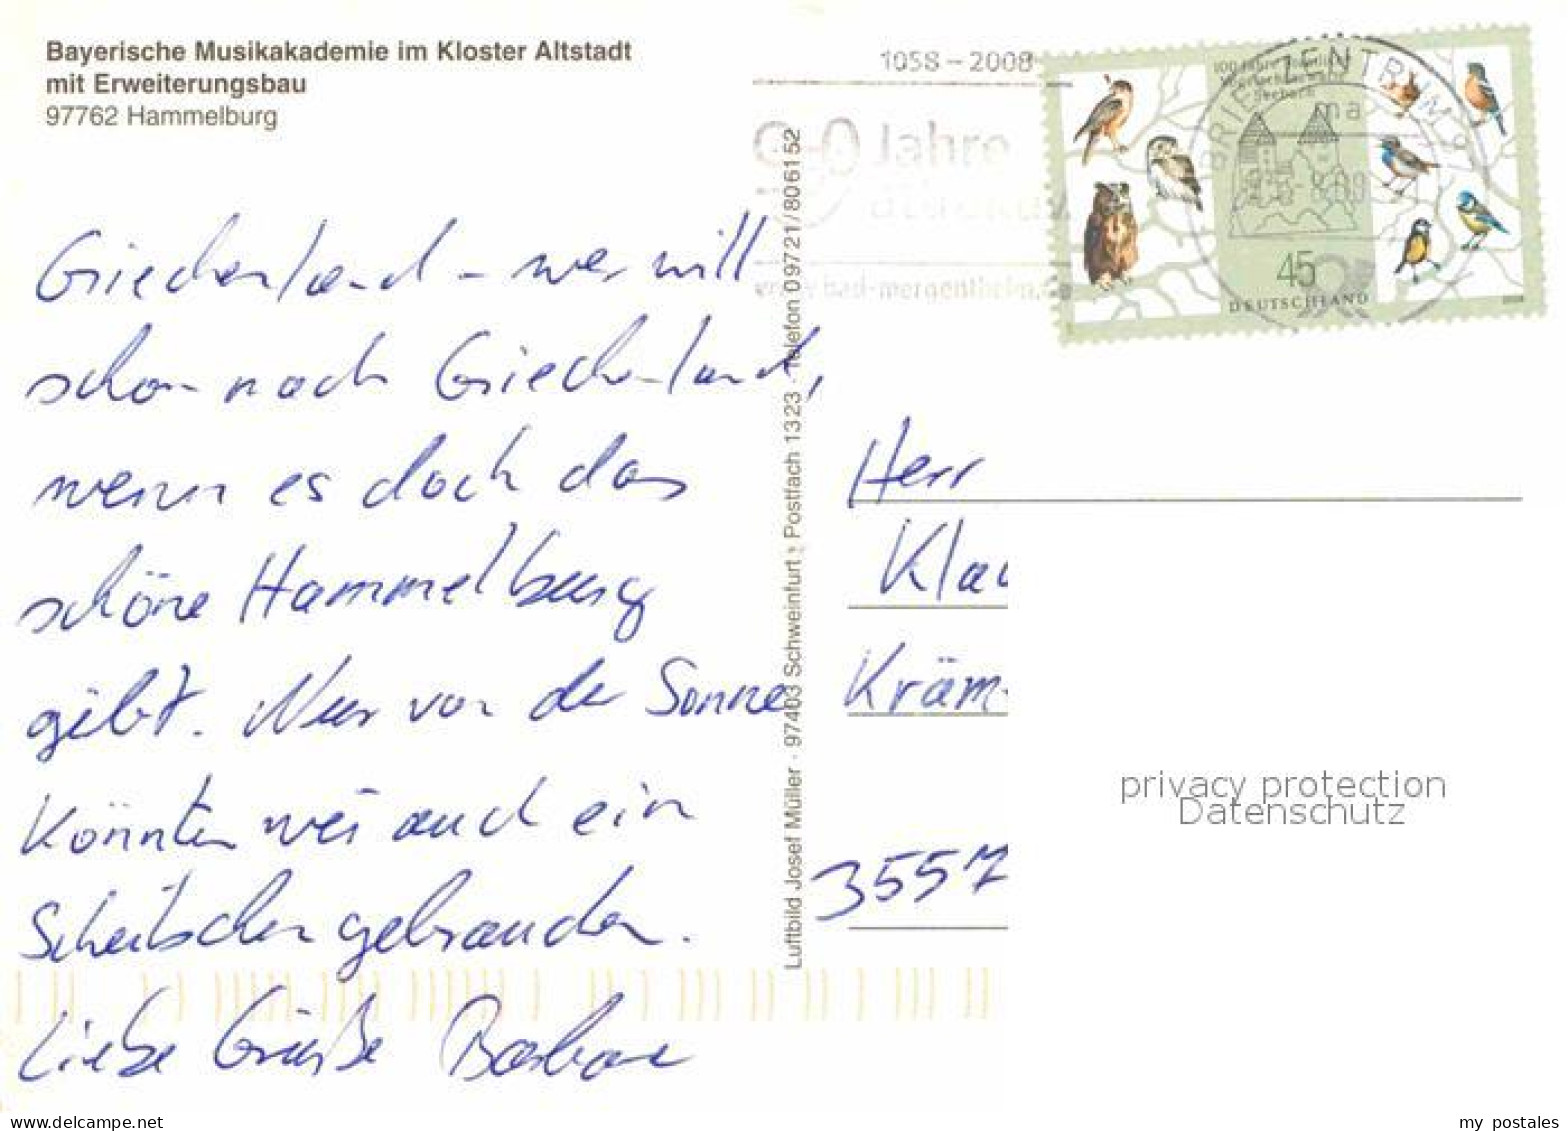 Bayerische Musikakademie im Kloster Altstadt
mit Erweiterungsbau
97762 Hammelburg
Griechenland - wer will
schon nach Griechenland,
wenn es doch das
schöne Hammelburg
gibt. Nur von der Sonne
könnten wir auch ein
Scheibchen gebrauchen.
Liebe Grüße Barbara
Luftbild Josef Müller · 97403 Schweinfurt · Postfach 1323 · Telefon 09721/806152
1058 – 2008
Jahre
www.bad-mergentheim.de
BRIEFZENTRUM
ma
100 Jahre
Seebach
45
DEUTSCHLAND
Herr
Klau
Kräm
3557
privacy protection
Datenschutz
my postales